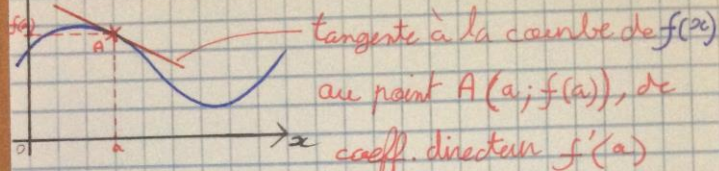 f(a)
A
0
a
x
tangente à la courbe de f(x)
au point A(a; f(a)), de
coeff. directeur f'(a)